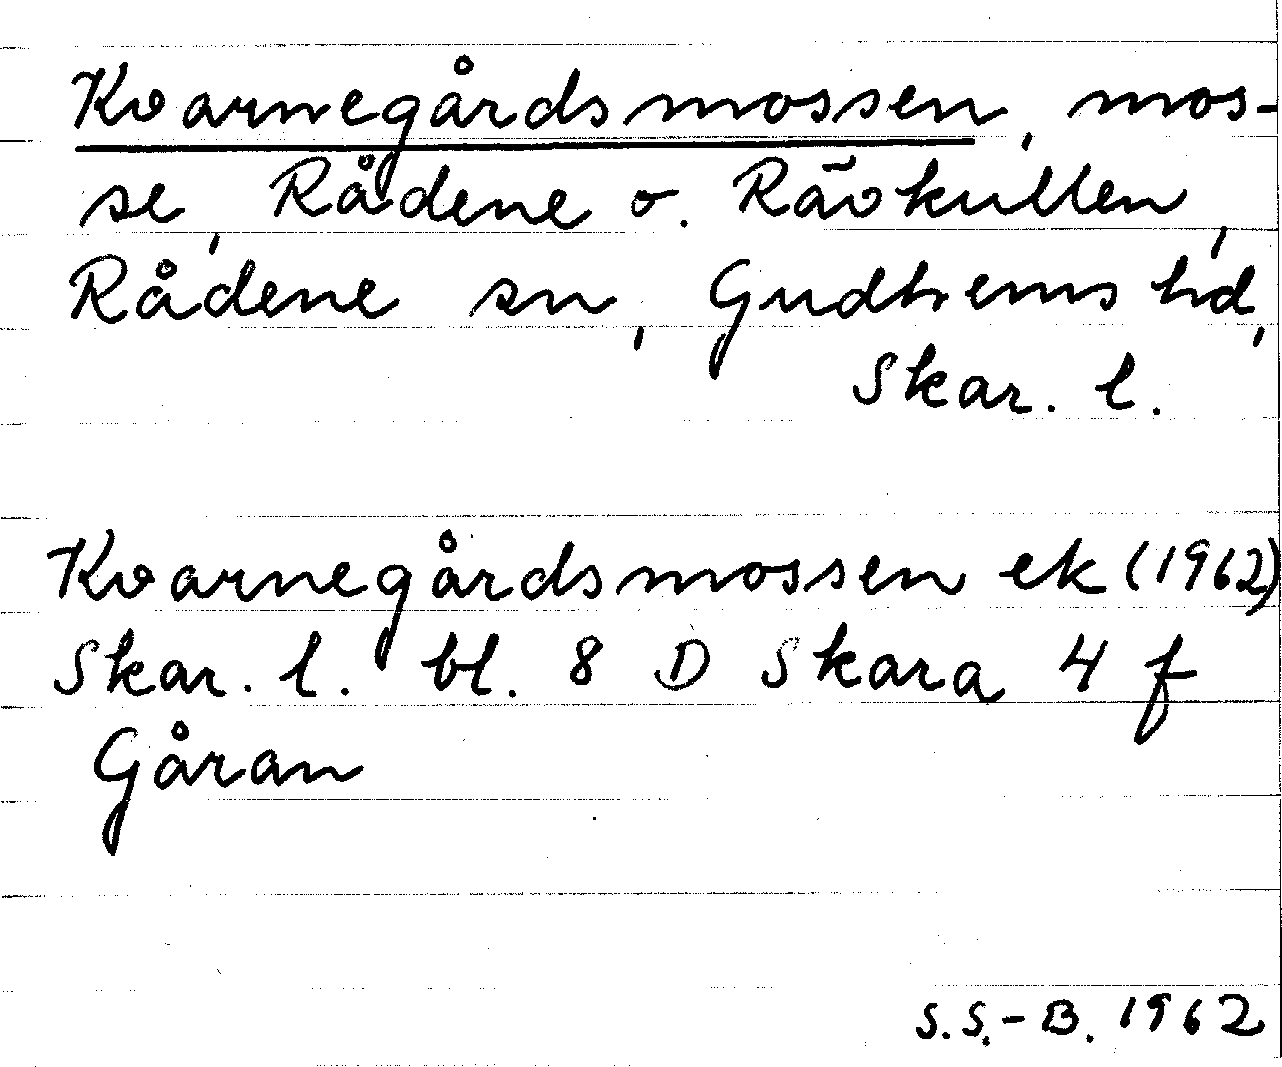 Kvarnegårdsmossen, mos-
se, Rådene o. Rävkullen,
Rådene sn, Gudhems hd,
Skar. l.
Kvarnegårdsmossen ek (1962)
Skar. l. bl. 8 D Skara 4 f
Gåran
S.S.-B. 1962